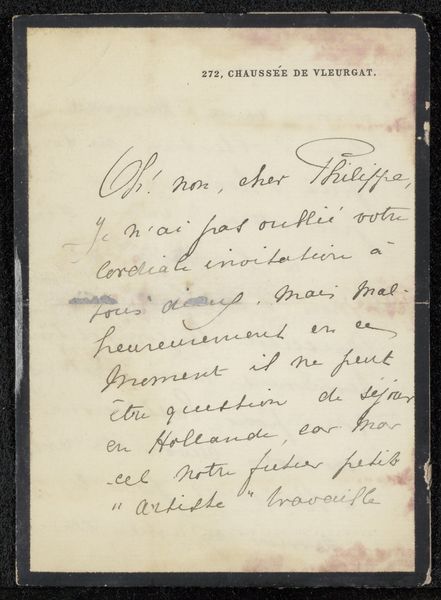 272, CHAUSSÉE DE VLEURGAT.
Oh! non, cher Philippe,
Je n'ai pas oublié votre
cordiale invitation à
tous deux. Mais mal-
heureusement en ce
moment il ne peut
être question de séjour
en Hollande, car Mar
cel notre futur petit
"artiste" travaille